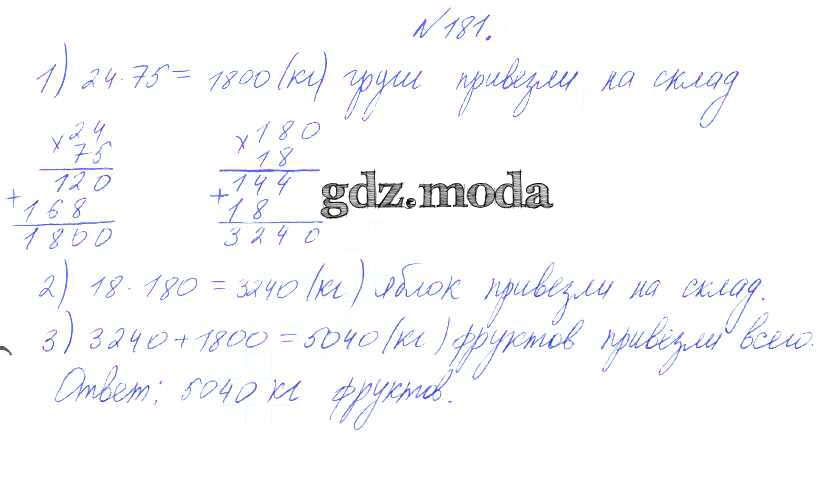 №181.
1) 24·75 = 1800 (кг) груш привезли на склад
×24 ×180
75 18
120 144
+ +
168 18
1800 3240
gdz.moda
2) 18·180 = 3240 (кг) яблок привезли на склад.
3) 3240+1800 = 5040 (кг) фруктов привезли всего.
Ответ: 5040 кг фруктов.